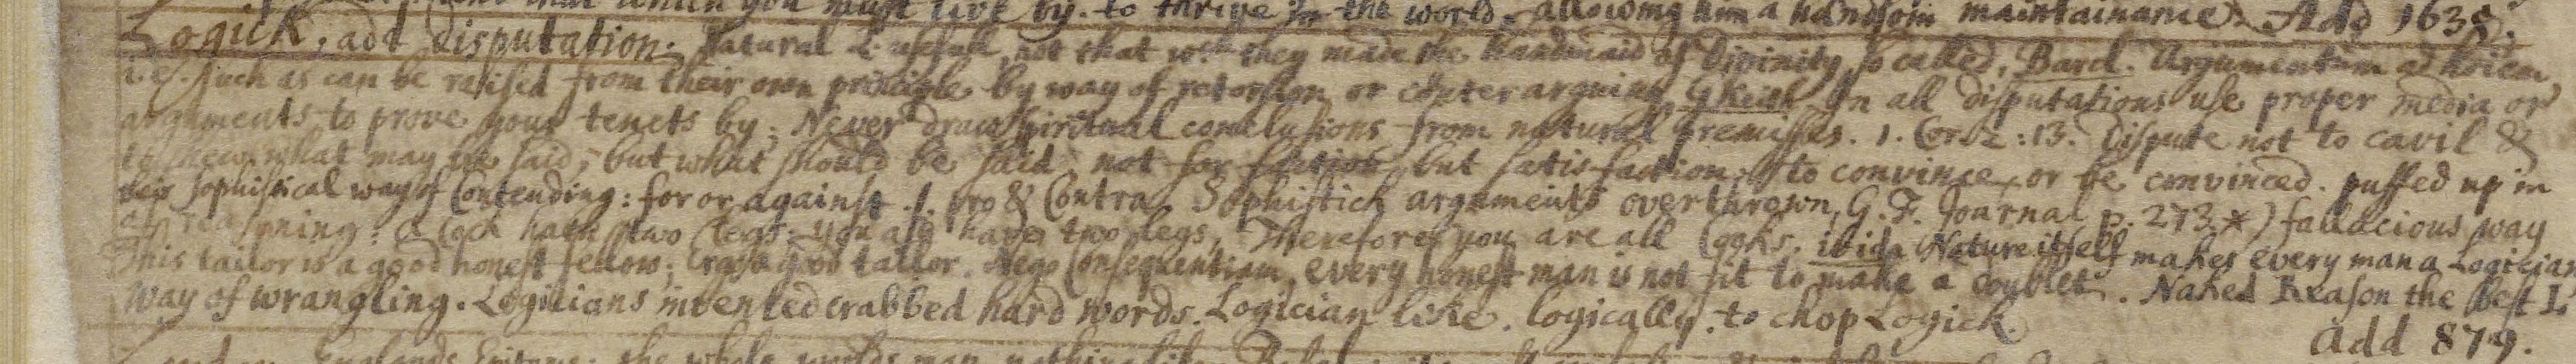 that which you must live by. to thrive in the world. allowing him a handsom maintainance. Add 1638.
Logick, add disputation. Natural & usefull, not that wch they made the Handmaid of Divinity so called, Barcl. Argumentum ad hoiem
i.e. such as can be raised from their own principles by way of retorsion or counter arguing GKeith. In all disputations use proper media or
arguments to prove your tenets by; Never draw spiritual conclusions from natural premisses. 1. Cor. 2:13. Dispute not to cavil &
to shew what may be said, but what should be said, not for faction but satisfaction, to convince or be convinced. puffed up in
their sophistical way of Contending: for or against. f. pro & Contra. Sophistick arguments overthrown, G. F. Journal p. 273.*) fallacious way
of reasoning: a Cock hath two legs, you all have two legs, Therefore you are all Cocks. ibid. Nature itself makes every man a Logician
This tailor is a good honest fellow; Ergo a good tailor. Nego Consequentiam, every honest man is not fit to make a doublet. Naked Reason the best L
way of wrangling. Logicians invented crabbed hard words. Logician like. logically. to chop Logick.
add 879.
Englands Epitome. the whole worlds